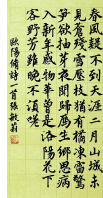 春風疑不到天涯二月山城未
見花殘雪壓枝猶有橘凍雷驚
筍欲抽芽夜聞歸雁生鄉思病
入新年感物華曾是洛陽花下
客野芳雖晚不須嗟
歐陽脩詩一首張敏